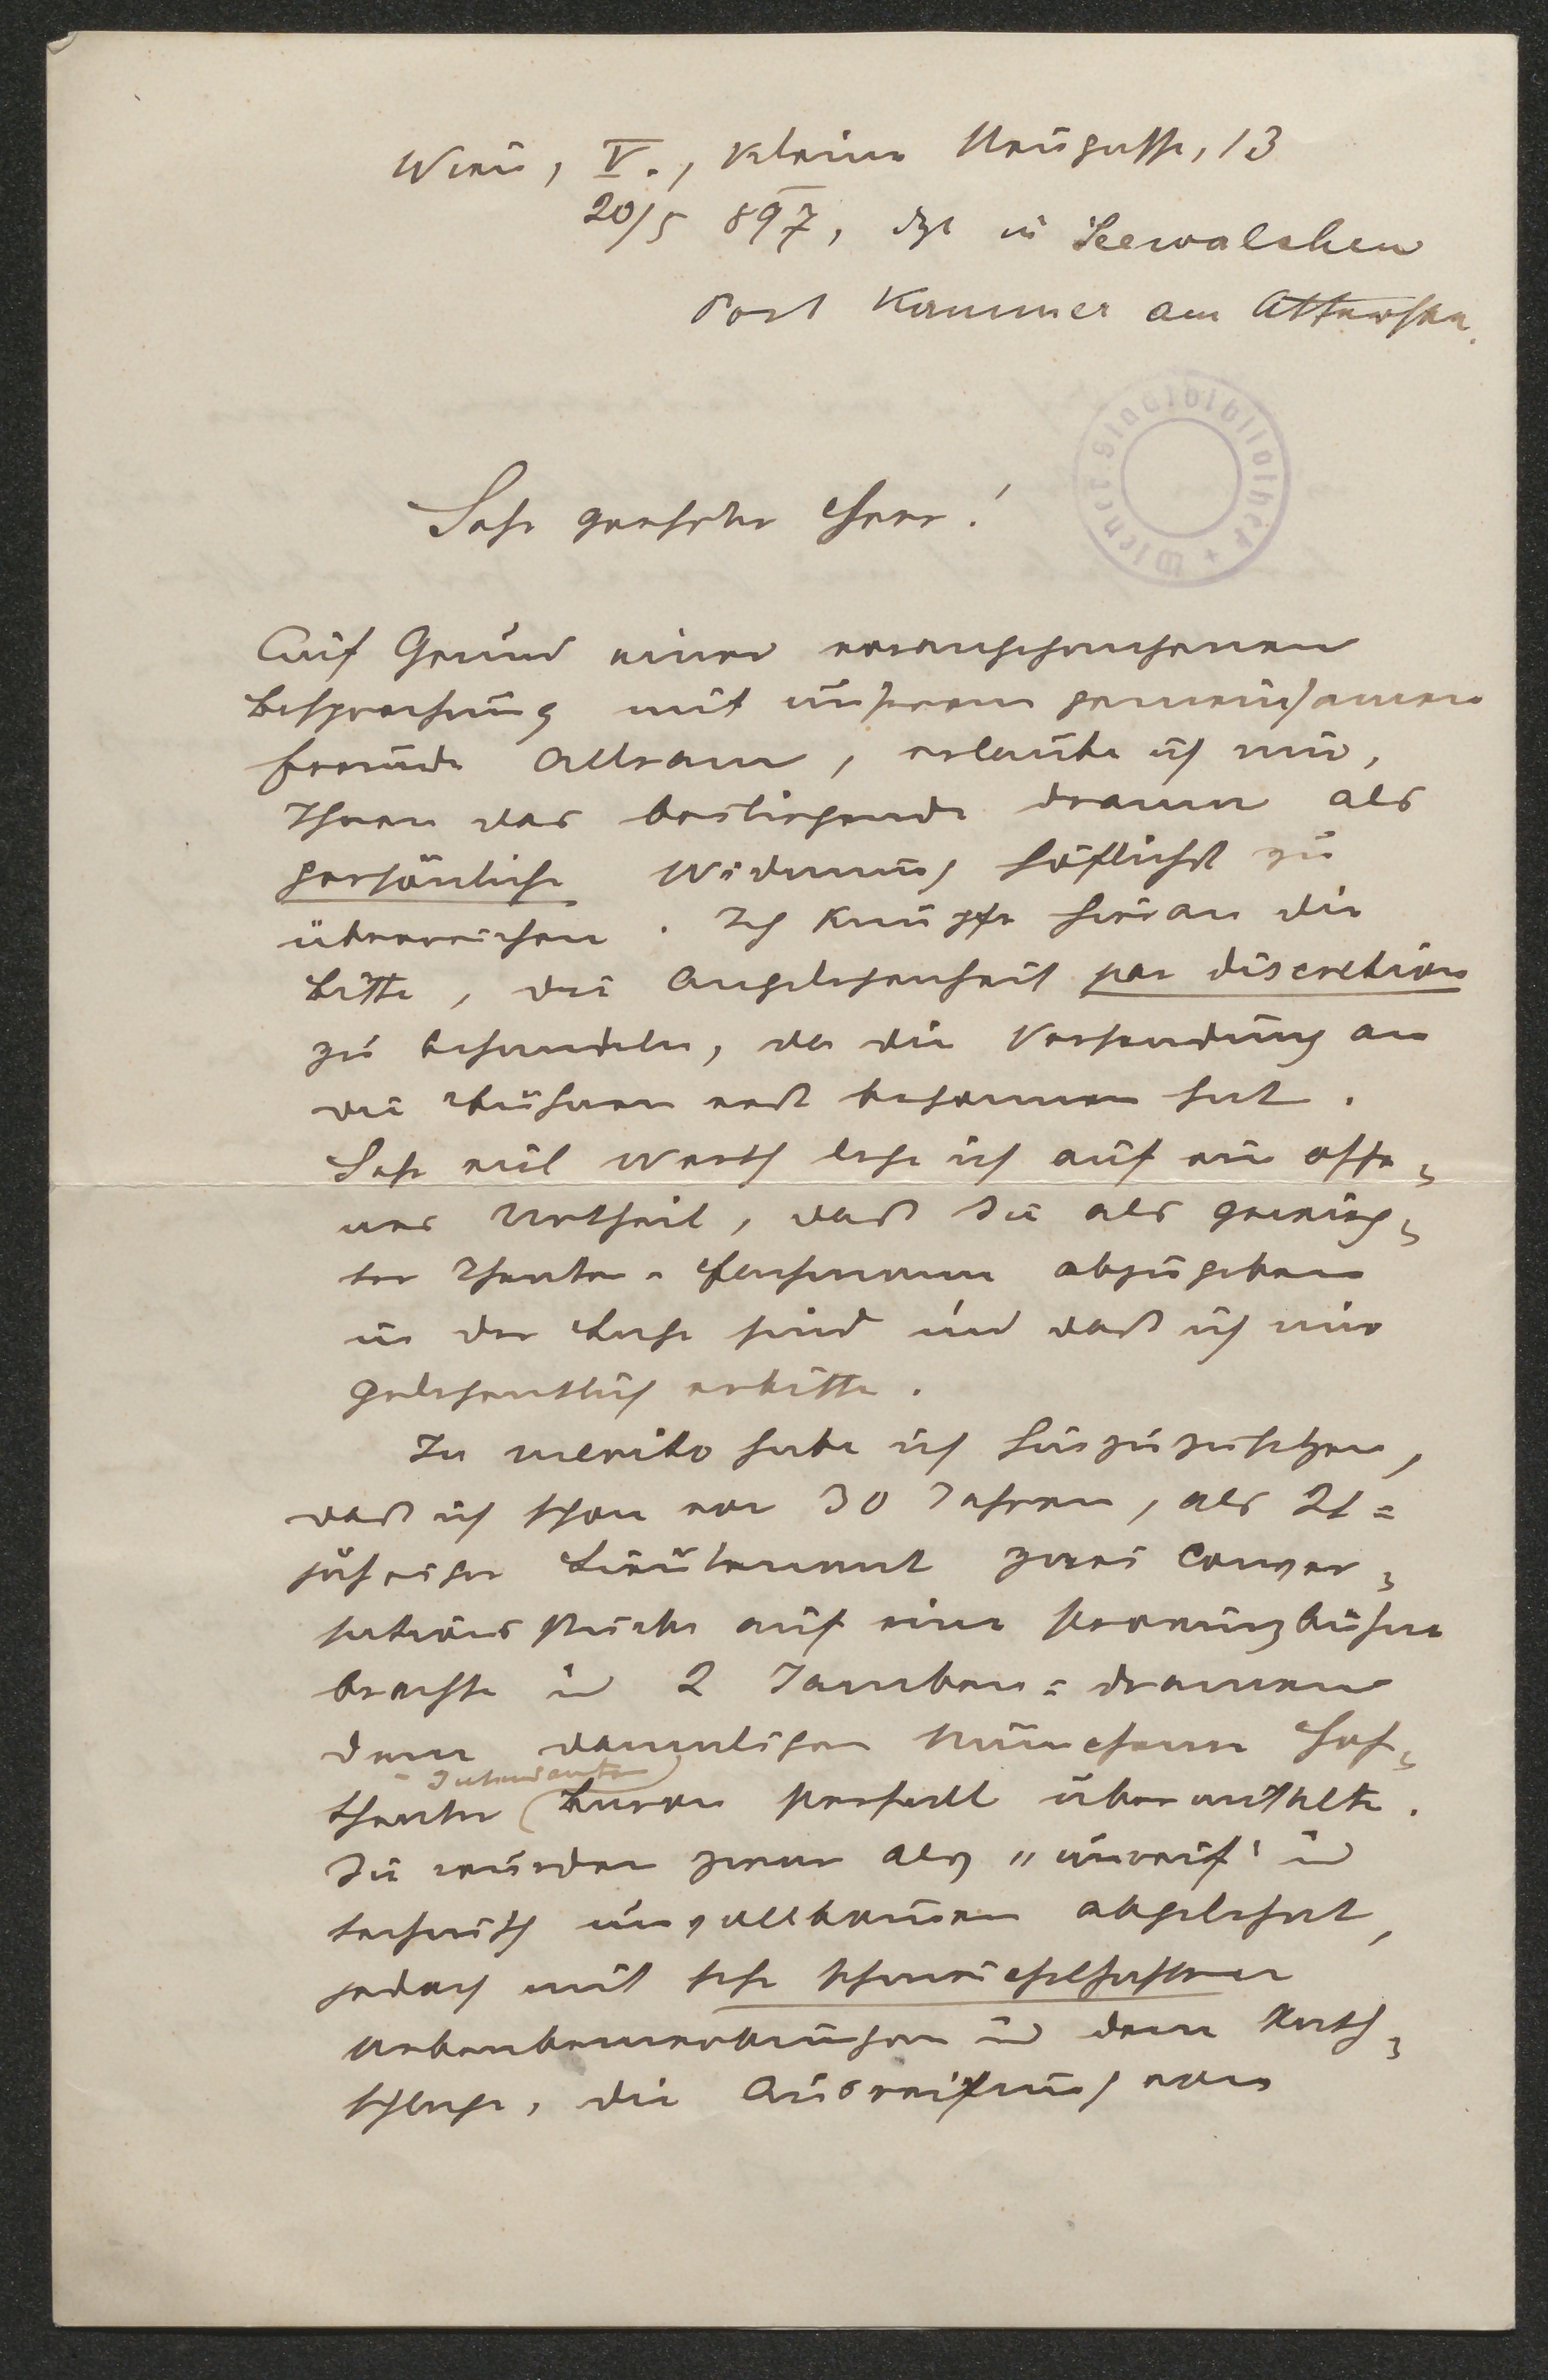 Wien, V., Kleine Neugasse, 13
20/5 897, dzt in Seewalchen
Post Kammer am Attersee.
Wiener Stadtbibliothek
Sehr geehrter Herr!
Auf Grund einer vorangegangenen
Besprechung mit unserem gemeinsamen
Freunde Altram, erlaube ich mir,
Ihnen das beiliegende Drama als
persönliche Widmung höflichst zu
überreichen. Ich knüpfe hieran die
Bitte, die Angelegenheit par discretion
zu behandeln, da die Versendung an
die Bühnen erst begonnen hat.
Sehr viel Werth lege ich auf ein offe-
nes Urtheil, daß Sie als gewieg-
ter Theater-Fachmann abzugeben
in der Lage sind und daß ich mir
gelegentlich erbitte.
In merito habe ich hinzuzusetzen,
daß ich schon vor 30 Jahren, als 21=
jähriger Lieutenant zwei Conver-
sations Stücke auf eine Provinzbühne
brachte u 2 Jamben=Dramen
dem damaligen Münchener Hof-
- Intendanten
theater Baron Perfall übermittelte.
Sie wurden zwar als „unreif" u
technisch unvollkommen abgelehnt,
jedoch mit sehr schmeichelhaften
Nebenbemerkungen u dem Rath-
schlage, die Ausreifung von